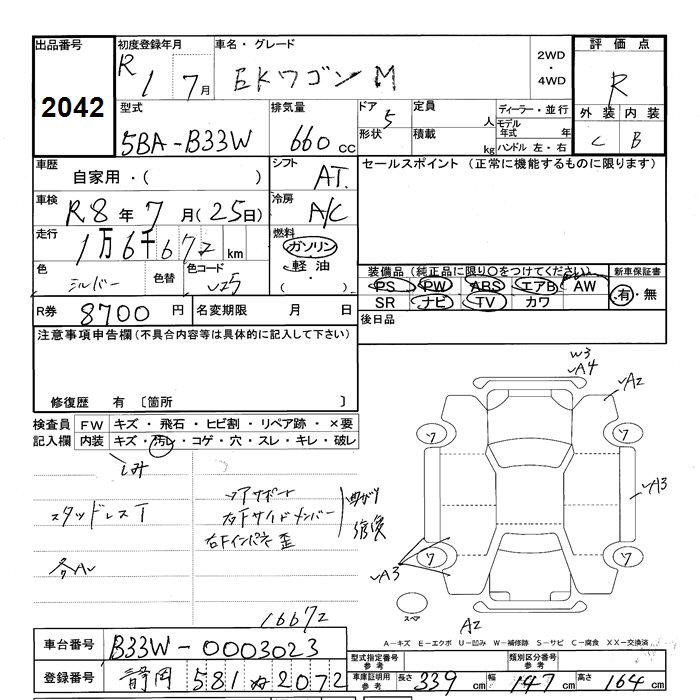 出品番号
2042
初度登録年月
R 1 7月
車名・グレード
EKワゴン M
2WD・4WD
評価点
R
外装 内装
C B
型式
5BA-B33W
排気量
660cc
ドア 5
形状
定員 人
積載 kg
ディーラー・並行
モデル年式 年
ハンドル 左・右
車歴
自家用・( )
シフト
AT.
セールスポイント (正常に機能するものに限ります)
車検
R8年 7月(25日)
冷房
A/C
走行
1万6千672km
燃料
ガソリン
軽油
・( )
色
シルバー
色替
色コード
U25
装備品(純正品に限り○をつけてください)
PS PW ABS エアB AW
SR ナビ TV カワ
新車保証書
有・無
R券 8700円
名変期限 月 日
後日品
注意事項申告欄(不具合内容等は具体的に記入して下さい)
修復歴 有 〔箇所 〕
検査員記入欄
FW キズ・飛石・ヒビ割・リペア跡・×要
内装 キズ・汚レ・コゲ・穴・スレ・キレ・破レ
シミ
スタッドレスT
各AU
コアサポート
右Fサイドメンバー
曲がり
修復
右Fインパネ歪
16672
W3
A4
A2
7
7
A3
7
7
A3
A2
スペア
A-キズ E-エクボ U-凹み W-補修跡 S-サビ C-腐食 XX-交換済
車台番号
B33W-0003023
登録番号
静岡 581 ぬ 2072
型式指定番号
参考
類別区分番号
参考
車庫証明用
参考
長さ 339cm 幅 147cm 高さ 164cm